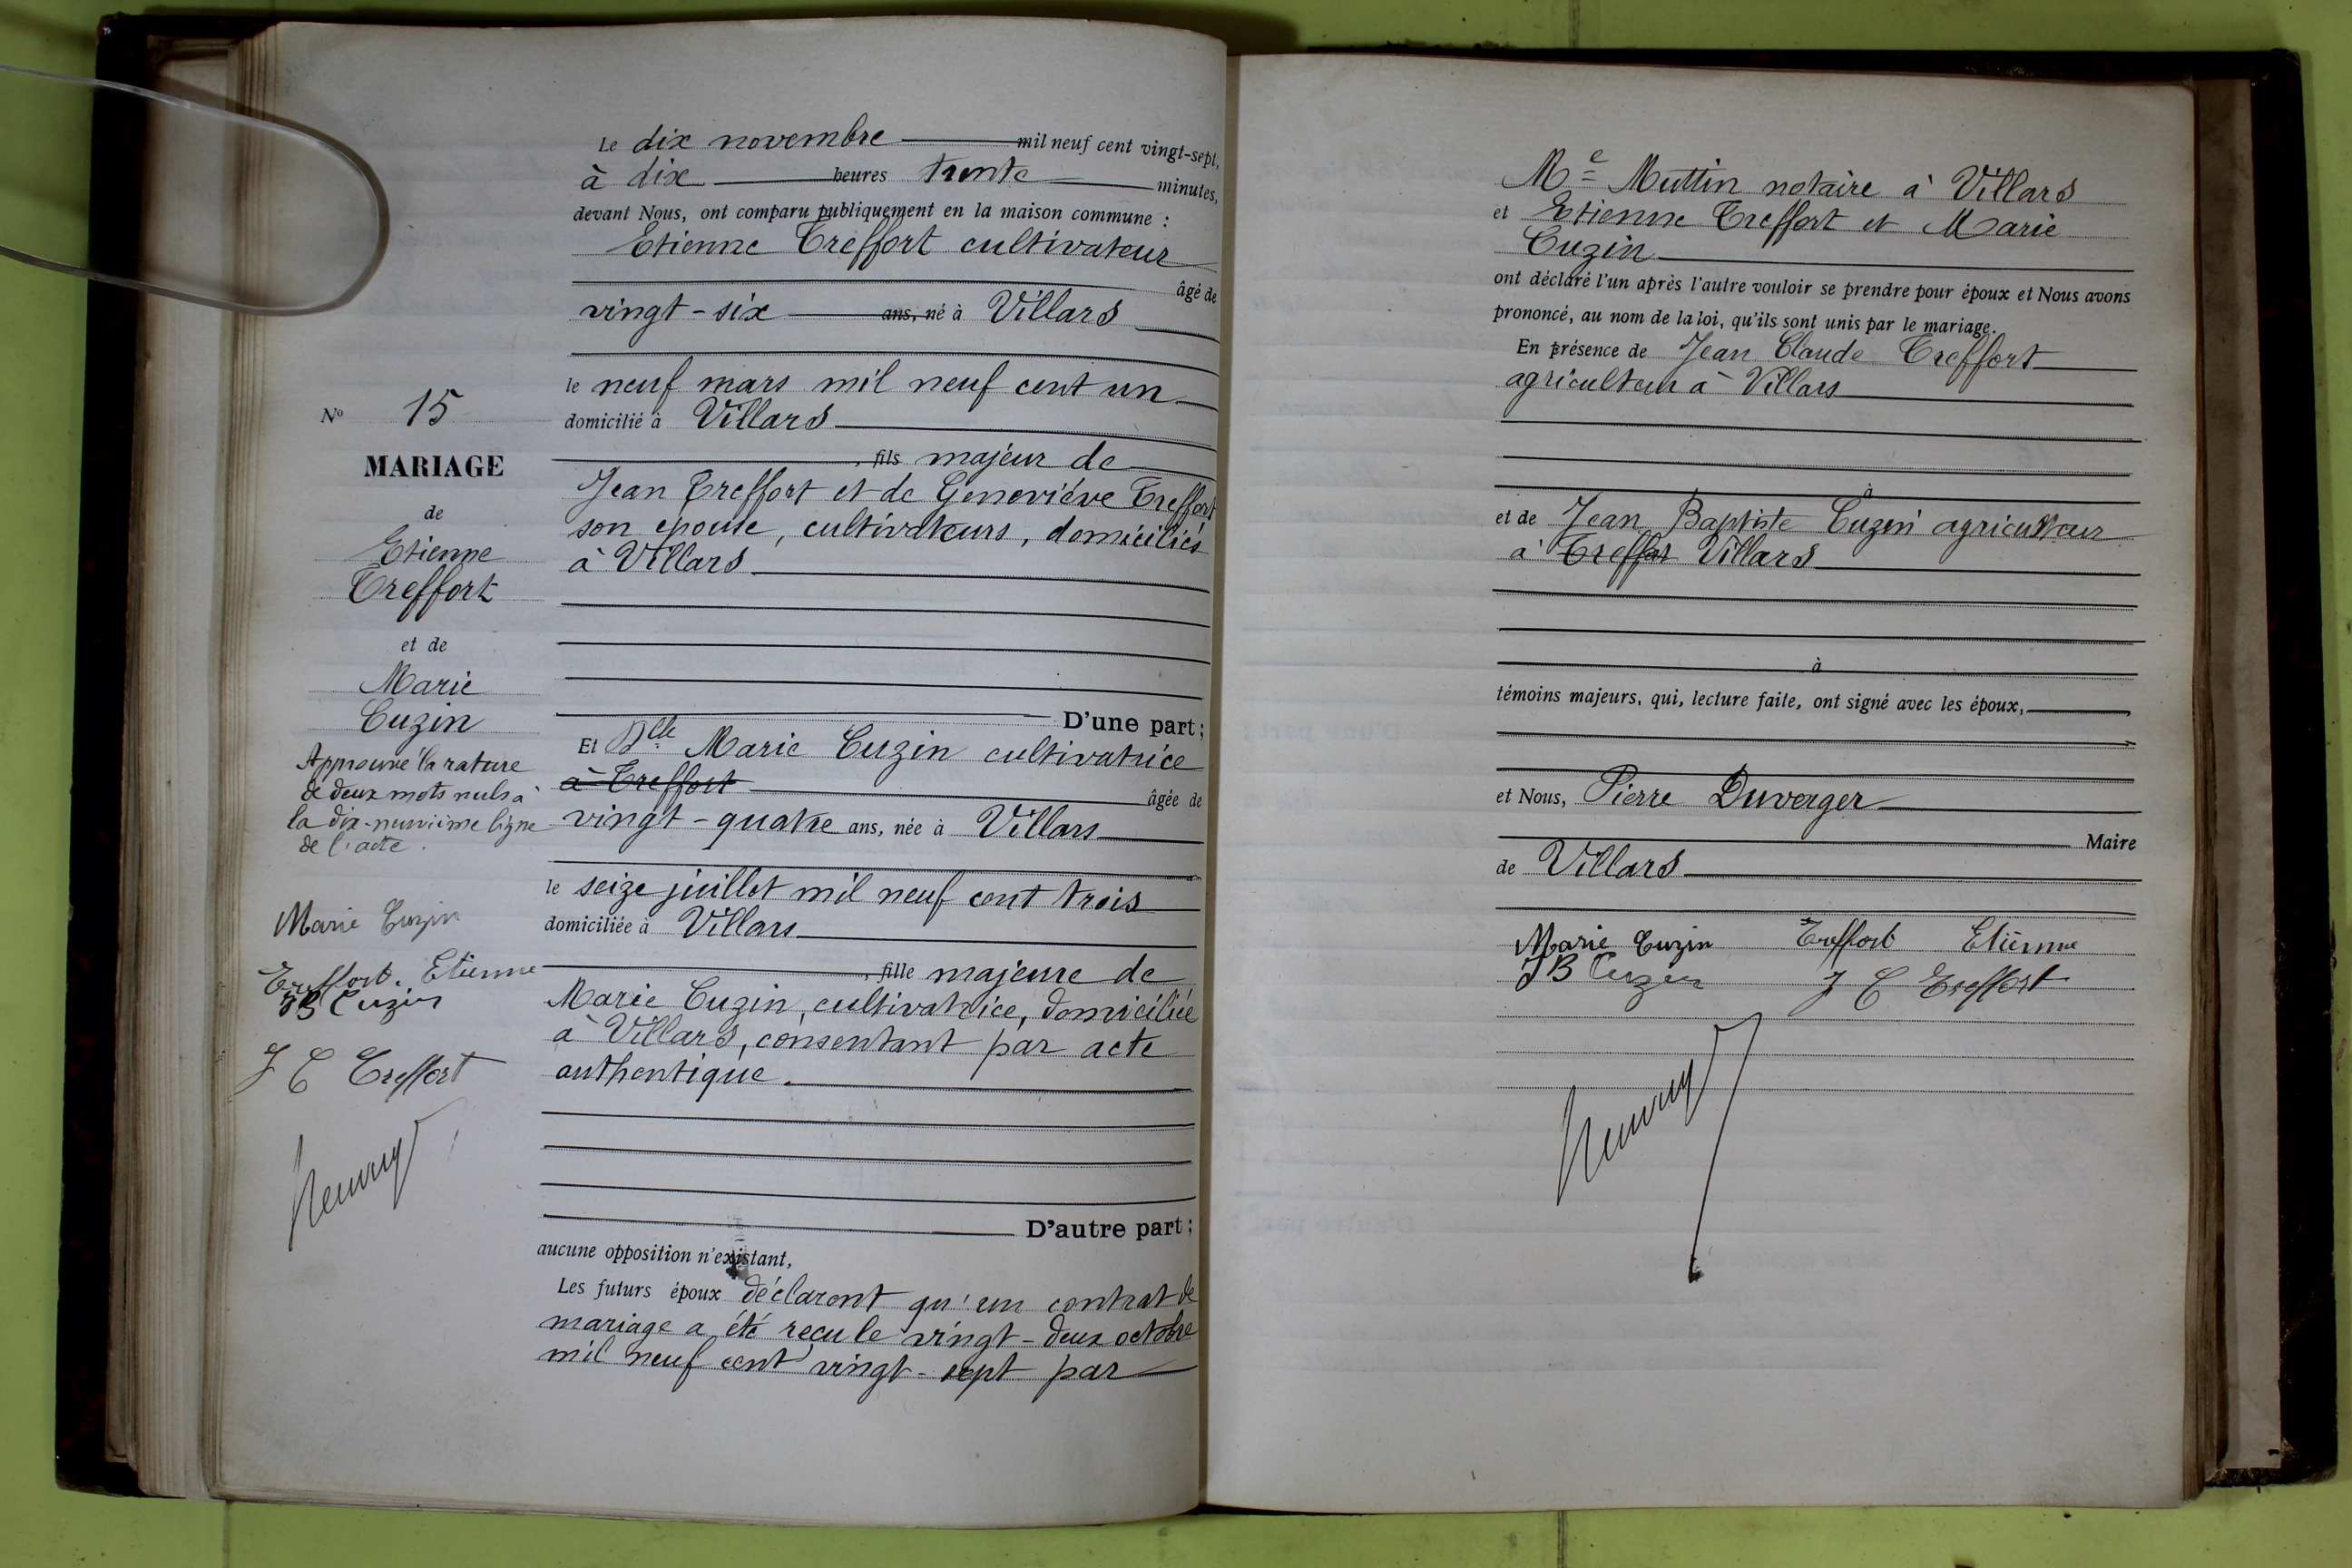 Le dix novembre mil neuf cent vingt-sept,
à dix heures trente minutes,
devant Nous, ont comparu publiquement en la maison commune :
Etienne Treffort cultivateur
âgé de
vingt-six ans, né à Villars
le neuf mars mil neuf cent un
domicilié à Villars
, fils majeur de
Jean Treffort et de Geneviève Treffort
son épouse, cultivateurs, domiciliés
à Villars
D'une part ;
Et Dlle Marie Cuzin cultivatrice
à Treffort âgée de
vingt-quatre ans, née à Villars
le seize juillet mil neuf cent trois
domiciliée à Villars
, fille majeure de
Marie Cuzin, cultivatrice, domiciliée
à Villars, consentant par acte
authentique.
D'autre part ;
aucune opposition n'existant,
Les futurs époux déclarent qu'un contrat de
mariage a été reçu le vingt-deux octobre
mil neuf cent vingt-sept par
No 15
MARIAGE
de
Etienne
Treffort
et de
Marie
Cuzin
Approuvé la rature
de deux mots nuls à
la dix-neuvième ligne
de l'acte.
Marie Cuzin
Treffort. Etienne
JB Cuzin
J C Treffort
Me Muttin notaire à Villars
et Etienne Treffort et Marie
Cuzin
ont déclaré l'un après l'autre vouloir se prendre pour époux et Nous avons
prononcé, au nom de la loi, qu'ils sont unis par le mariage.
En présence de Jean Claude Treffort
agriculteur à Villars
à
et de Jean Baptiste Cuzin agriculteur
à Treffort Villars
à
témoins majeurs, qui, lecture faite, ont signé avec les époux,
et Nous, Pierre Duverger
Maire
de Villars
Marie Cuzin Treffort Etienne
JB Cuzin J C Treffort